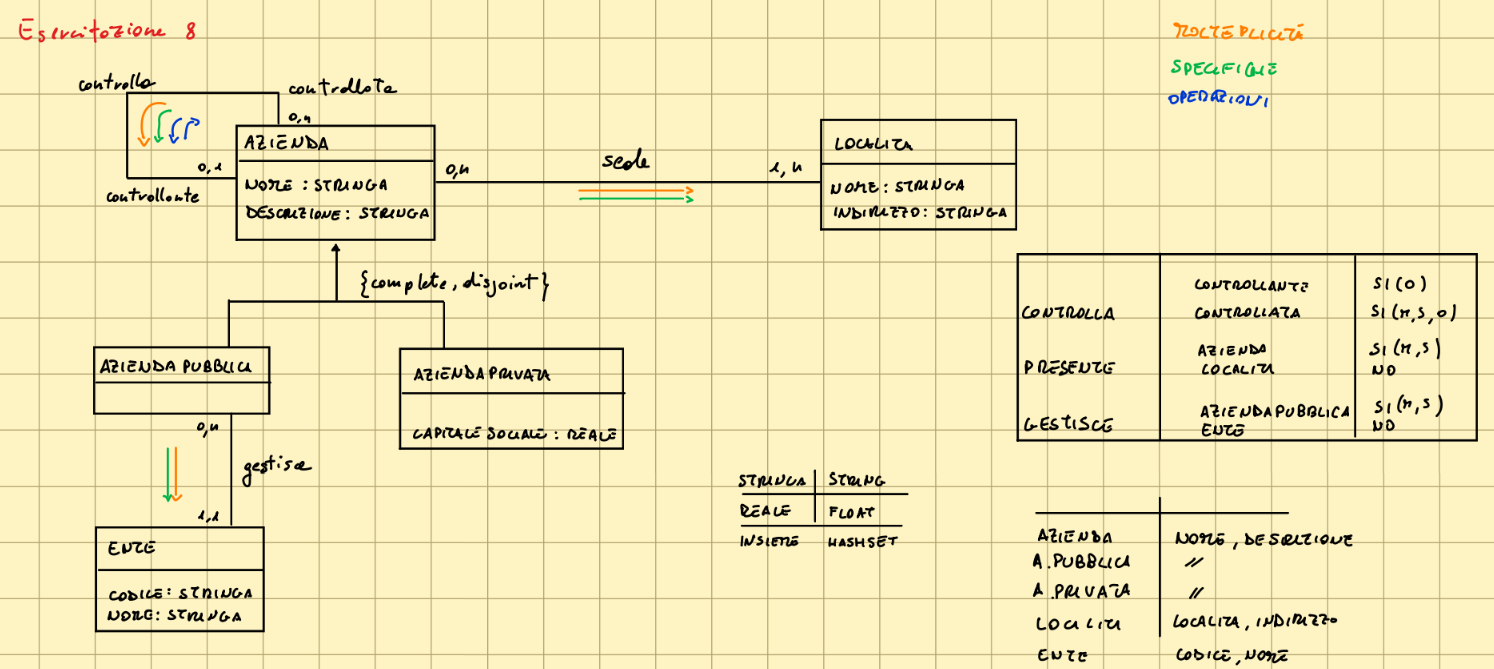 Esercitazione 8
MOLTEPLICITÀ
SPECIFICHE
OPERAZIONI
controlla
controllata
0,n
0,1
controllante
AZIENDA
NOME : STRINGA
DESCRIZIONE : STRINGA
0,n
sede
1,n
LOCALITA
NOME : STRINGA
INDIRIZZO : STRINGA
{complete, disjoint}
AZIENDA PUBBLICA
AZIENDA PRIVATA
CAPITALE SOCIALE : REALE
0,n
gestisce
1,1
ENTE
CODICE : STRINGA
NOME : STRINGA
CONTROLLANTE SI (O)
CONTROLLA CONTROLLATA SI (M,S,O)
AZIENDA SI (M,S)
PRESENTE LOCALITA NO
AZIENDA PUBBLICA SI (M,S)
GESTISCE ENTE NO
STRINGA STRING
REALE FLOAT
INSIEME HASHSET
AZIENDA NOME, DESCRIZIONE
A.PUBBLICA //
A.PRIVATA //
LOCALITA LOCALITA, INDIRIZZO
ENTE CODICE, NOME